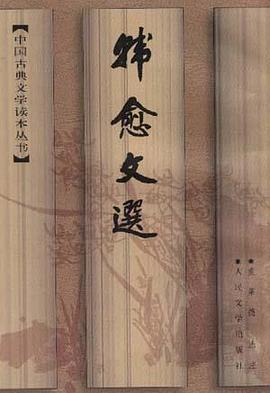 【中国古典文学读本丛书】
韩愈文選
●童第德选注
●人民文学出版社